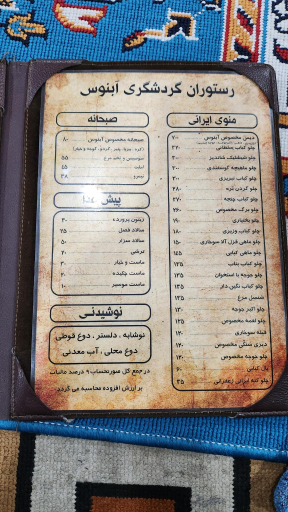 رستوران گردشگری آبنوس
منوی ایرانی
دیس مخصوص آبنوس
چلو کباب سلطانی ۳۷۰
چلو شیشلیک شاندیز ۳۰۰
چلو ماهیچه گوسفندی ۳۰۰
چلو کباب تبریزی ۳۰۰
چلو گردن بره ۲۸۰
چلو کباب چنجه ۲۷۰
چلو برگ مخصوص ۲۶۰
چلو بختیاری ۱۹۰
چلو ماهی قزل آلا سوخاری ۱۵۰
چلو ماهی کبابی ۱۴۵
چلو کباب بناب ۱۳۵
چلو جوجه با استخوان ۱۳۵
چلو کباب نگین دار ۱۳۵
شنسل مرغ ۱۳۵
چلو اکبر جوجه ۱۳۰
چلو کباب وزیری ۱۳۰
چلو لقمه مخصوص ۱۲۵
فیله سوخاری ۱۲۰
دیزی سنگی مخصوص ۱۲۰
چلو جوجه مخصوص ۱۲۰
پک کبابی ۶۰
چلو کته ایرانی زعفرانی ۳۵
صبحانه
صبحانه مخصوص آبنوس ۸۰
سوسیس و تخم مرغ ۵۵
املت ۵۵
نیمرو ۳۸
پیش غذا
زیتون پرورده ۳۰
سالاد فصل ۲۵
سالاد سزار ۵۰
ترشی ۲۰
ماست و خیار ۲۰
ماست چکیده ۲۰
ماست موسیر ۱۰
نوشیدنی
نوشابه ، دلستر ، دوغ قوطی
دوغ محلی ، آب معدنی
در جمع کل صورتحساب ۹ درصد مالیات
بر ارزش افزوده محاسبه می گردد